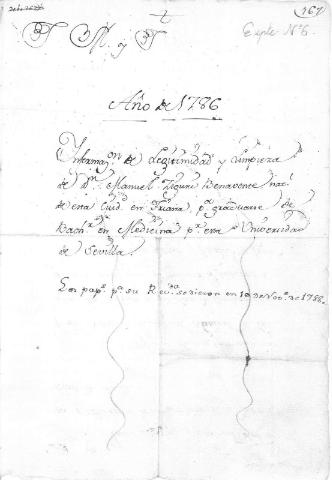 167
Expte Nº 6.
t
J M. y J
Año de 1786
Informaon. de Legitimidad y Limpieza
de Dn. Manuel Benavente natl.
de esta Ciud. en Triana, pa. graduarse de
Bachr. en Medicina pr. esta Universidad
de Sevilla.
Los paps. pa. su Revda. se dieron en 10 de Nove. de 1788.